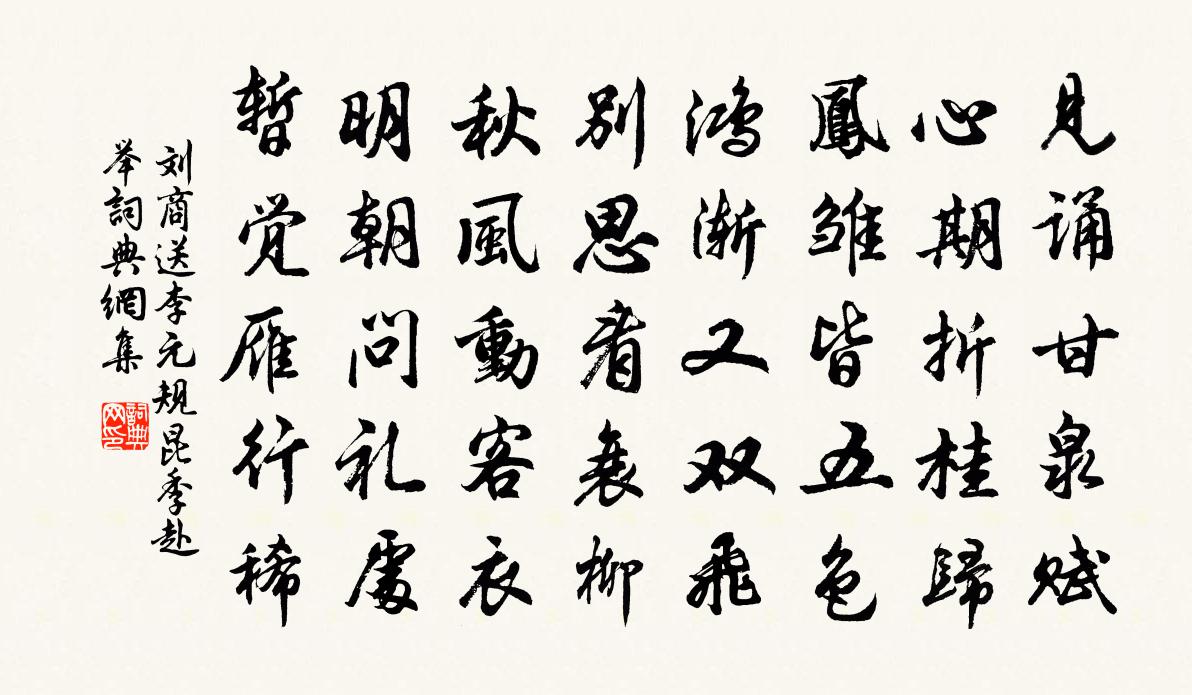 見诵甘泉赋
心期折桂歸
鳳雏皆五色
鸿渐又双飛
别思看衰柳
秋風動客衣
明朝问礼處
暫觉雁行稀
刘商送李元規昆季赴
举詞典網集
詞典
网印